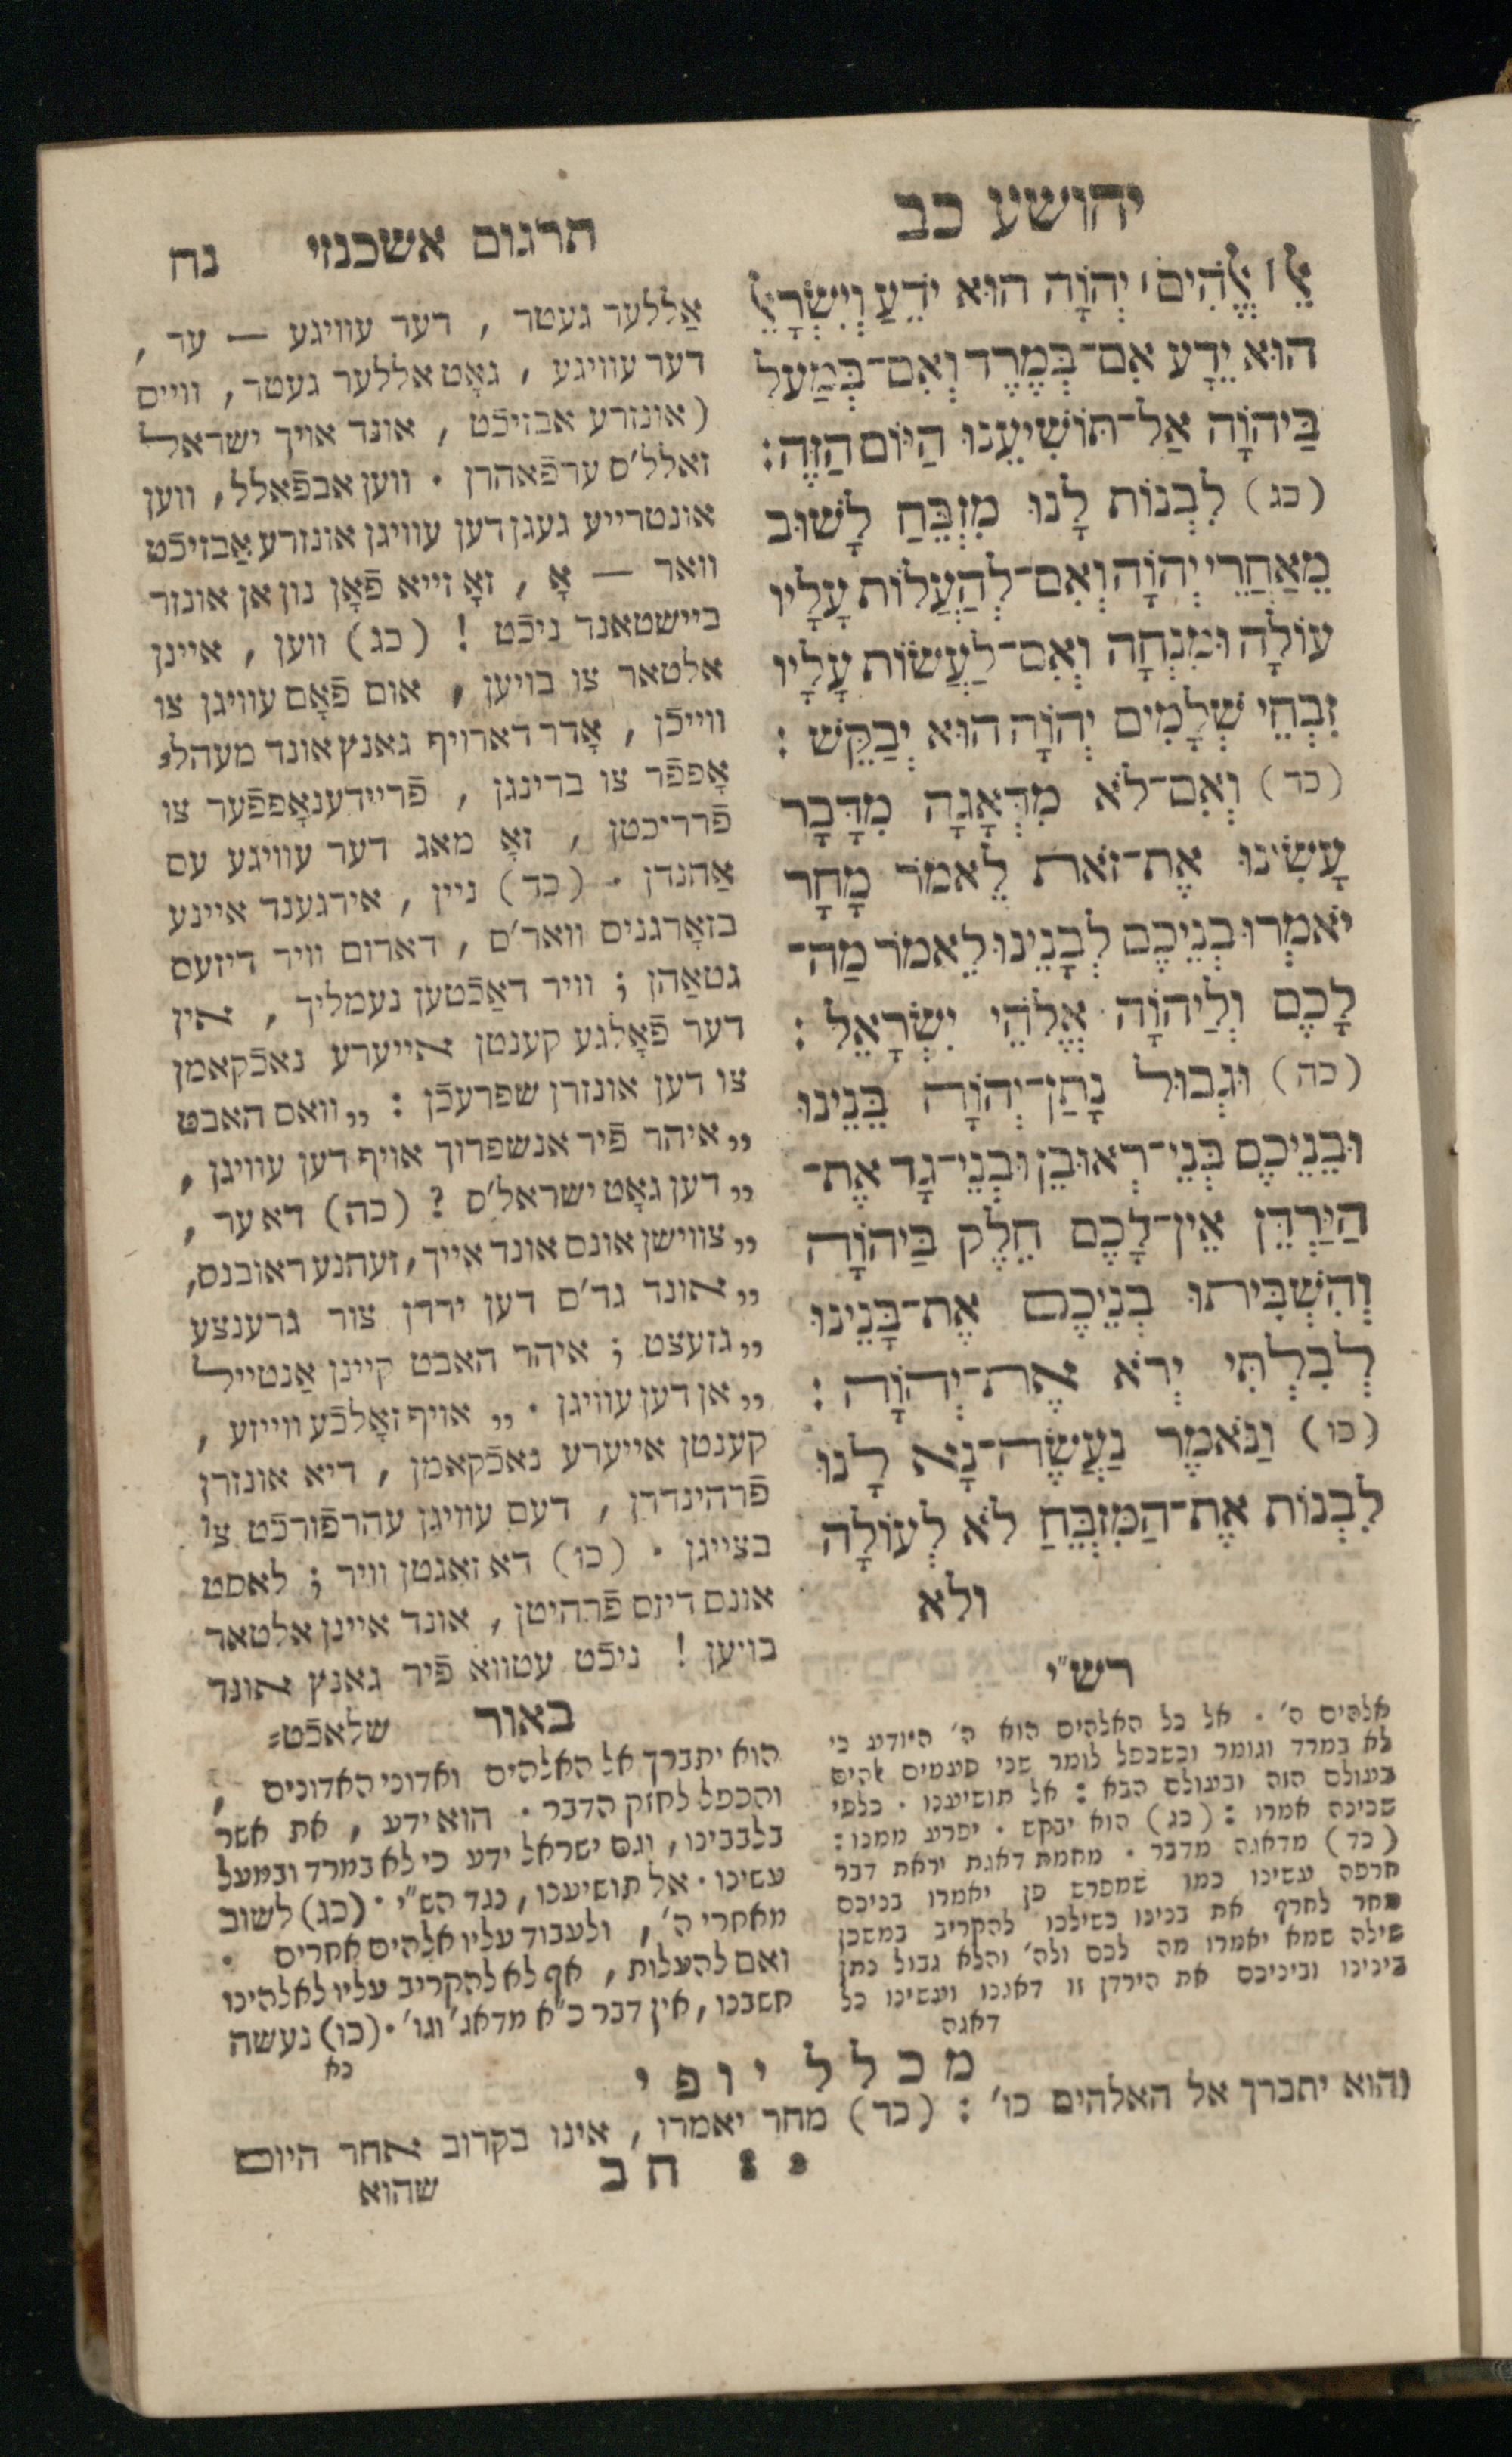 יהושע כב
אֵל׀ אֱלֹהִים׀ יְהוָֹה הוּא יֹדֵעַ וְיִשְׂרָאֵל
הוּא יֵדָע אִם־בְּמֶרֶד וְאִם־בְּמַעַל
בַּיהוָֹה אַל־תּוֹשִׁיעֵנוּ הַיּוֹם הַזֶּה:
(כג) לִבְנוֹת לָנוּ מִזְבֵּחַ לָשׁוּב
מֵאַחֲרֵי יְהוָֹה וְאִם־לְהַעֲלוֹת עָלָיו
עוֹלָה וּמִנְחָה וְאִם־לַעֲשׂוֹת עָלָיו
זִבְחֵי שְׁלָמִים יְהוָֹה הוּא יְבַקֵּשׁ:
(כד) וְאִם־לֹא מִדְּאָגָה מִדָּבָר
עָשִׂינוּ אֶת־זֹאת לֵאמֹר מָחָר
יֹאמְרוּ בְנֵיכֶם לְבָנֵינוּ לֵאמֹר מַה־
לָּכֶם וְלַיהוָֹה אֱלֹהֵי יִשְׂרָאֵל:
(כה) וּגְבוּל נָתַן־יְהוָֹה בֵּנֵינוּ
וּבֵנֵיכֶם בְּנֵי־רְאוּבֵן וּבְנֵי־גָד אֶת־
הַיַּרְדֵּן אֵין־לָכֶם חֵלֶק בַּיהוָֹה
וְהִשְׁבִּיתוּ בְנֵיכֶם אֶת־בָּנֵינוּ
לְבִלְתִּי יְרֹא אֶת־יְהוָֹה:
(כו) וַנֹּאמֶר נַעֲשֶׂה־נָּא לָנוּ
לִבְנוֹת אֶת־הַמִּזְבֵּחַ לֹא לְעוֹלָה
ולא
תרגום אשכנזי נח
אַללער געטר, דער עוויגע — ער,
דער עוויגע, גאָט אללער געטר, ווייס
(אונזרע אבזיכֿט, אונד אויך ישראל
זאלל'ס ערפֿאהרן. ווען אבפֿאלל, ווען
אונטרייע געגן דען עוויגן אונזרע אַבזיכֿט
וואר — אָ, זאָ זייא פֿאָן נון אן אונזר
ביישטאנד ניכֿט! (כג) ווען, איינן
אלטאר צו בויען, אום פֿאָם עוויגן צו
ווייכֿן, אָדר דארויף גאנץ אונד מעהל⸗
אָפפֿר צו ברינגן, פֿריידענאָפפֿער צו
פֿרריכטן, זאָ מאג דער עוויגע עס
אַהנדן. (כד) ניין, אירגענד איינע
בזאָרגניס וואר'ס, דארום וויר דיזעס
גטאַהן; וויר דאַכֿטען נעמליך, אין
דער פֿאָלגע קענטן אייערע נאכֿקאמן
צו דען אונזרן שפרעכֿן: „וואס האבט
„איהר פֿיר אנשפרוך אויף דען עוויגן,
„דען גאָט ישראל'ס? (כה) דא ער,
„צווישן אונס אונד אייך, זעהנע ראובנס,
„אונד גד'ס דען ירדן צור גרענצע
„גזעצט; איהר האבט קיינן אַנטייל
„אן דען עוויגן. „ אויף זאָלכֿע ווייזע,
קענטן אייערע נאכֿקאמן, דיא אונזרן
פֿרהינדרן, דעם עוויגן עהרפֿורכֿט צו
בצייגן. (כו) דא זאגטן וויר; לאסט
אונס דיזס פֿרהיטן, אונד איינן אלטאר
בויען! ניכֿט עטווא פֿיר גאנץ אונד
שלאכֿט⸗
רש״י
אלהים ה'. אל כל האלהים הוא ה' היודע כי
לא במרד וגומר וכשכפל לומר שני פעמים אהים
בעולם הזה ובעולם הבא: אל תושיענו. כלפי
שכינה אמרו: (כג) הוא יבקש. יפרע ממנו:
(כד) מדאגה מדבר. מחמת דאגת יראת דבר
חרפה עשינו כמו שמפרש פן יאמרו בניכם
מחר לחרף את בנינו כשילכו להקריב במשכן
שילה שמא יאמרו מה לכם ולה' והלא גבול נתן
בינינו וביניכם את הירדן זו דאגנו ועשינו כל
דאגה
באור
הוא יתברך אל האלהים ואדוני האדונים,
והכפל לחזק הדבר. הוא ידע, את אשר
בלבבינו, וגם ישראל ידע כי לא במרד ובמעל
עשינו. אל תושיענו, נגד הש״י. (כג) לשוב
מאחרי ה', ולעבוד עליו אלהים אחרים.
ואם להעלות, אף לא להקריב עליו לאלהינו
חשבנו, אין דבר כ״א מדאג' וגו'. (כו) נעשה
נא
מכלל יופי
והוא יתברך אל האלהים כו': (כד) מחר יאמרו, אינו בקרוב אחר היום
חב
שהוא